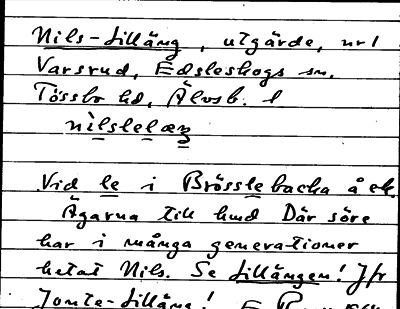 Nils-Lilläng, utgärde, nr 1
Varsrud, Edsleskogs sn.
Tössbo hd, Älvsb. l
nìlslelæŋ
Vid le i Brösslebacka å ek.
Ägarna till hmd Där söre
har i många generationer
hetat Nils. Se Lillängen! Jfr
Jonte-Lilläng!